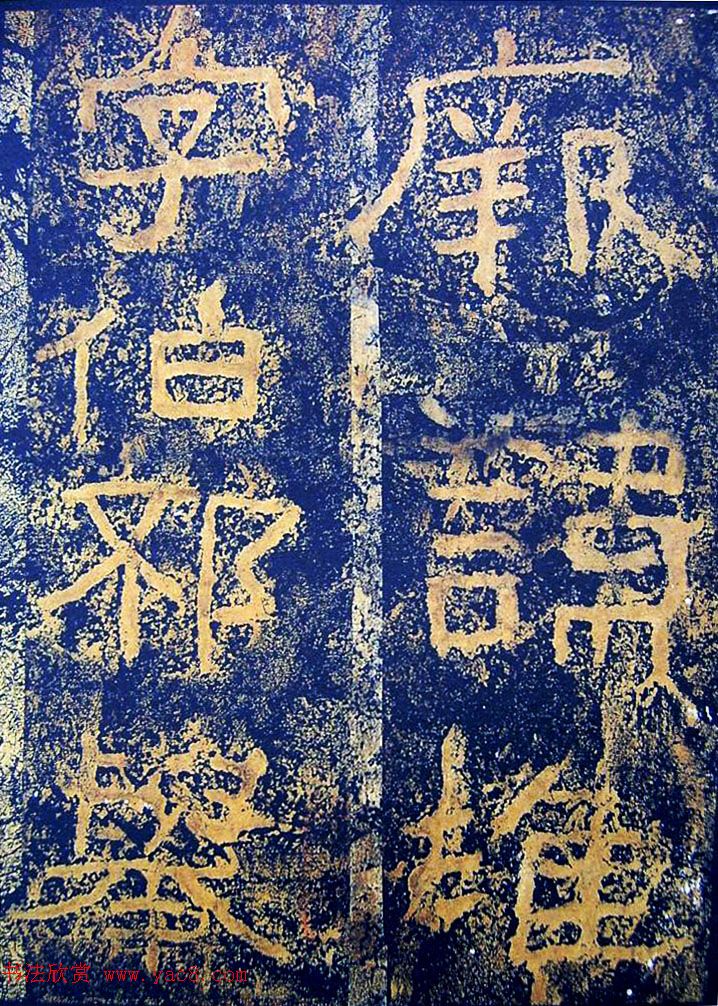 厥諱淮
字伯邳舉
书法欣赏 www.yac8.com